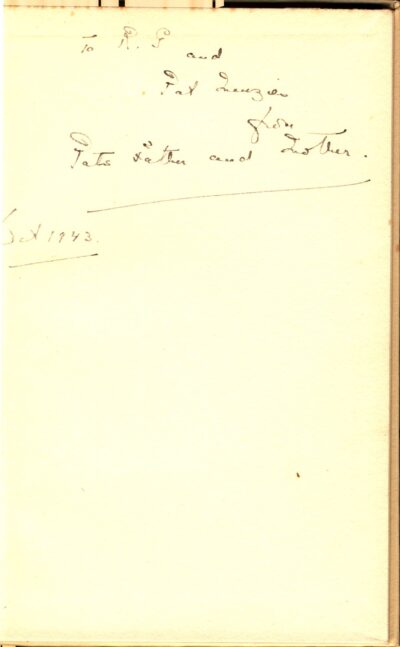 To R. G and
Pat Menzies
from
Pats Father and Mother.
Oct 1943.